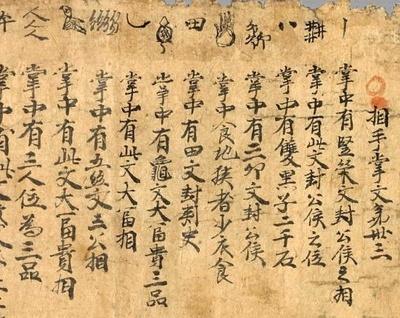 相手掌文弟卅二
掌中有竪策文封公侯之相
掌中有此文封公侯之位
掌中有雙黑子二千石
掌中有二卯文封公侯
掌中食地狹者少衣食
掌中有田文封刾史
掌中有龜文大冨貴三品
掌中有此文大冨相
掌中有五文三公相
掌中有此文大冨貴相
掌中有三人位為三品
掌中有此文